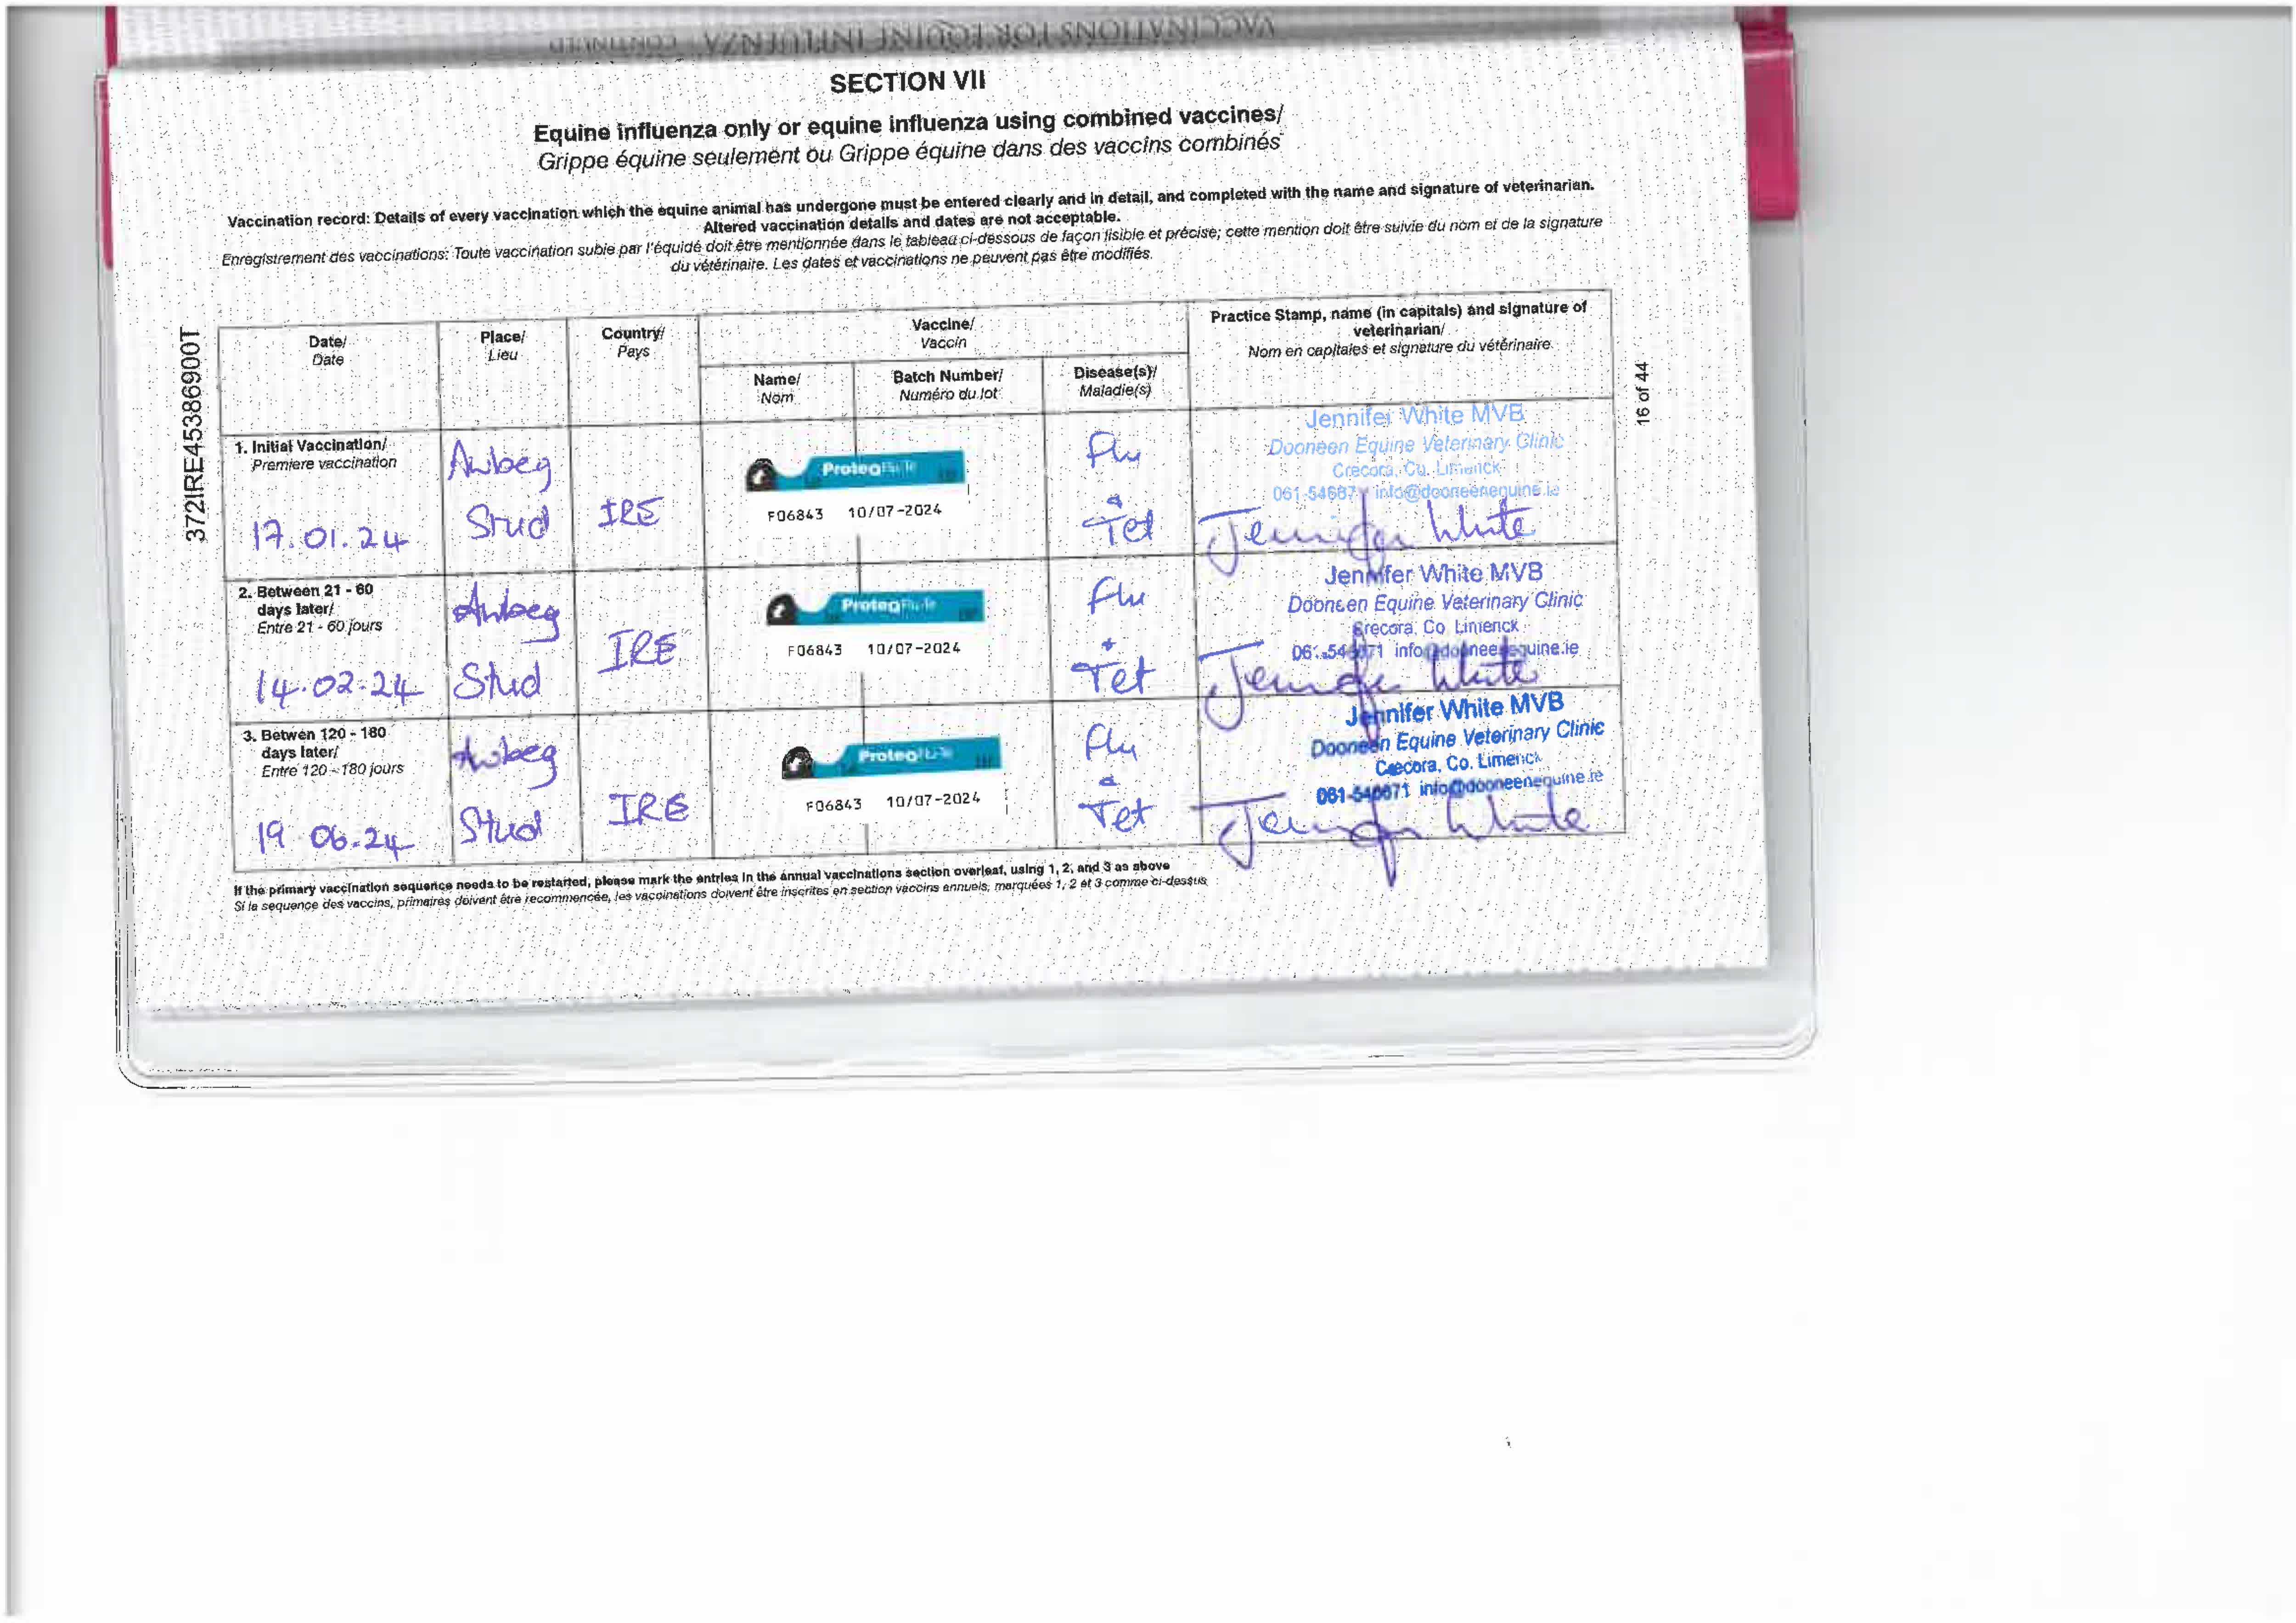 VACCINATIONS FOR EQUINE INFLUENZA CONTINUED
SECTION VII
Equine influenza only or equine influenza using combined vaccines/
Grippe équine seulement ou Grippe équine dans des vaccins combinés
Vaccination record: Details of every vaccination which the equine animal has undergone must be entered clearly and in detail, and completed with the name and signature of veterinarian.
Altered vaccination details and dates are not acceptable.
Enregistrement des vaccinations: Toute vaccination subie par l'équidé doit être mentionnée dans le tableau ci-dessous de façon lisible et précise; cette mention doit être suivie du nom et de la signature
du vétérinaire. Les dates et vaccinations ne peuvent pas être modifiés.
372IRE45386900T
16 of 44
Date/
Date
Place/
Lieu
Country/
Pays
Vaccine/
Vaccin
Name/
Nom
Batch Number/
Numéro du lot
Disease(s)/
Maladie(s)
Practice Stamp, name (in capitals) and signature of
veterinarian/
Nom en capitales et signature du vétérinaire
1. Initial Vaccination/
Premiere vaccination
17.01.24
Stud
IRE
ProteqFlu-Te
F06843 10/07-2024
Flu
&
Tet
Jennifer White MVB
Dooneen Equine Veterinary Clinic
Crecora, Co. Limerick
info@dooneenequine.ie
Jennifer White
2. Between 21 - 60
days later/
Entre 21 - 60 jours
14.02.24
Stud
IRE
ProteqFlu-Te
F06843 10/07-2024
Flu
+
Tet
Jennifer White MVB
Dooneen Equine Veterinary Clinic
Crecora, Co Limerick
info@dooneenequine.ie
Jennifer White
3. Betwen 120 - 180
days later/
Entre 120 - 180 jours
19 06.24
Stud
IRE
ProteqFlu-Te
F06843 10/07-2024
Flu
&
Tet
Jennifer White MVB
Dooneen Equine Veterinary Clinic
Crecora, Co. Limerick
061-546671 info@dooneenequine.ie
Jennifer White
If the primary vaccination sequence needs to be restarted, please mark the entries in the annual vaccinations section overleaf, using 1, 2, and 3 as above
Si la sequence des vaccins, primaires doivent être recommencée, les vaccinations doivent être inscrites en section vaccins annuels, marquées 1, 2 et 3 comme ci-dessus